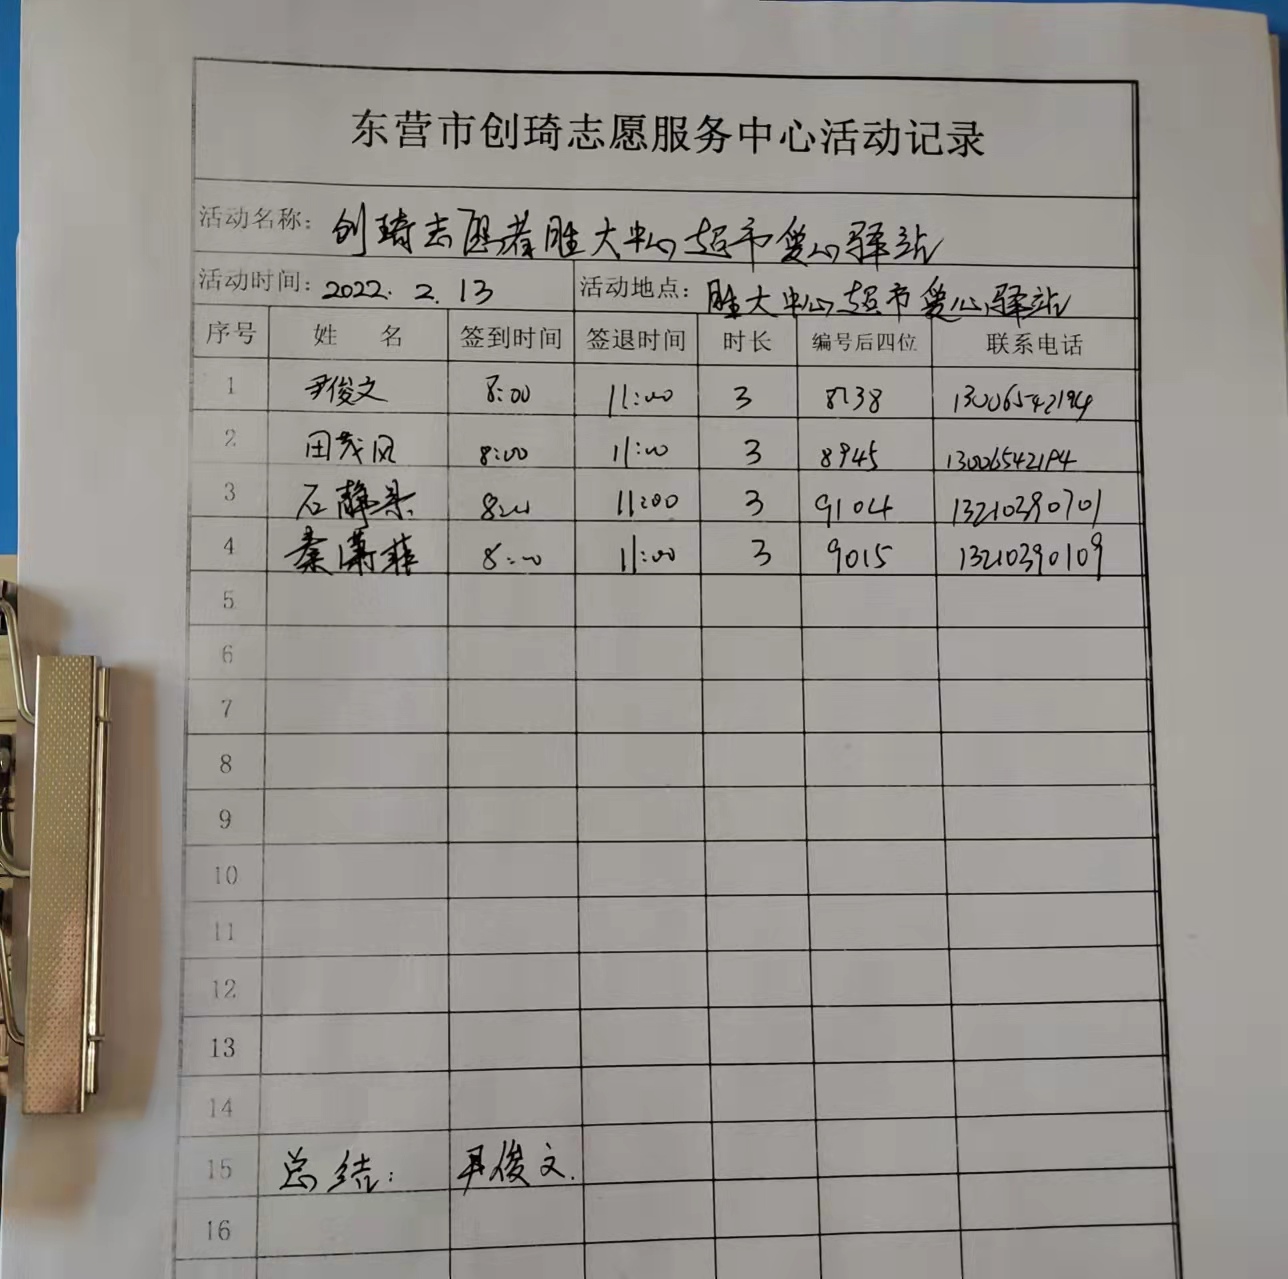 东营市创琦志愿服务中心活动记录
活动名称：创琦志愿者胜大中心超市爱心驿站
活动时间：2022.2.13 活动地点：胜大中心超市爱心驿站
序号 姓名 签到时间 签退时间 时长 编号后四位 联系电话
1 尹俊文 8:00 11:00 3 8238 13006542194
2 田茂风 8:00 11:00 3 8945 13006542194
3 石静 8:00 11:00 3 9104 13210390701
4 秦潇菲 8:00 11:00 3 9015 13210390109
5
6
7
8
9
10
11
12
13
14
15 总结： 尹俊文.
16